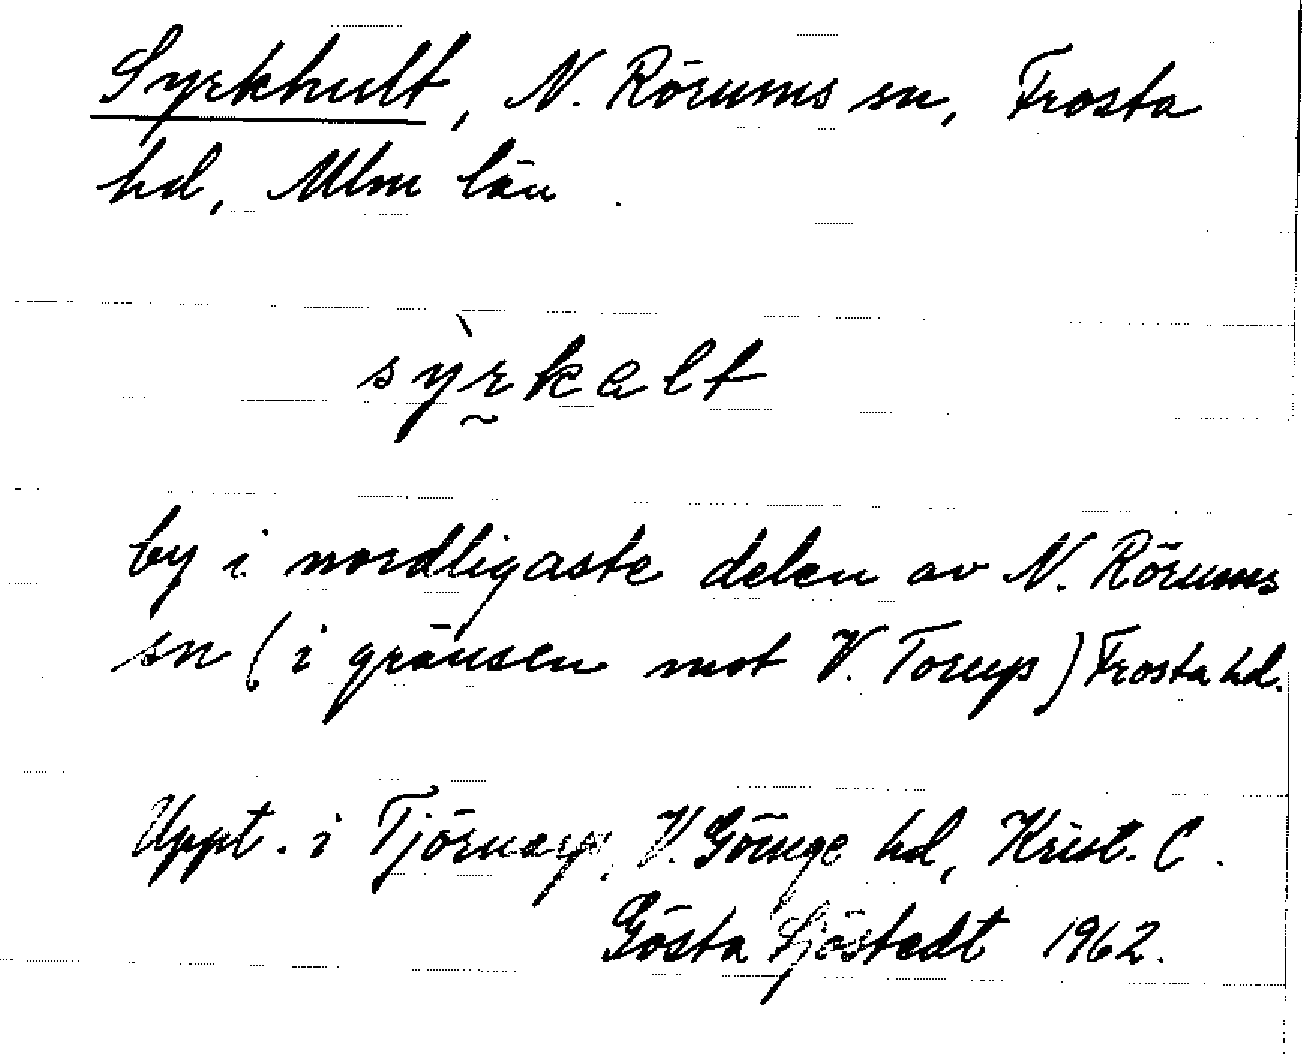 Syrkhult, N. Rörums sn, Frosta
hd, Mlm län.
sỳr̰kalt
by i nordligaste delen av N. Rörums
sn (i gränsen mot V. Torup) Frosta hd.
Uppt. i Tjörnarp, V. Göinge hd, Krist. C.
Gösta Sjöstedt 1962.